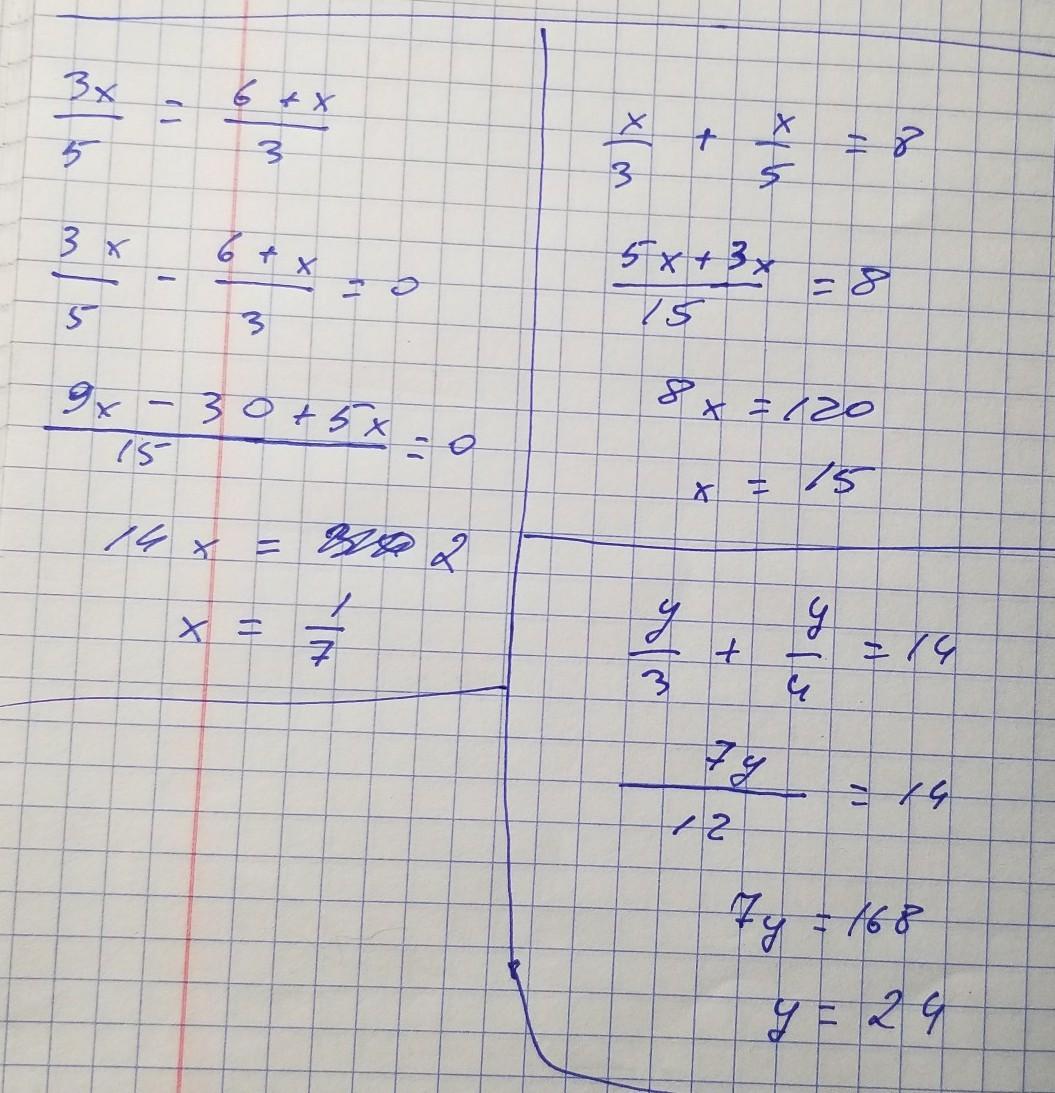 3x/5 = (6 + x)/3
3x/5 - (6 + x)/3 = 0
(9x - 30 + 5x)/15 = 0
14x = 2
x = 1/7
x/3 + x/5 = 8
(5x + 3x)/15 = 8
8x = 120
x = 15
y/3 + y/4 = 14
7y/12 = 14
7y = 168
y = 24